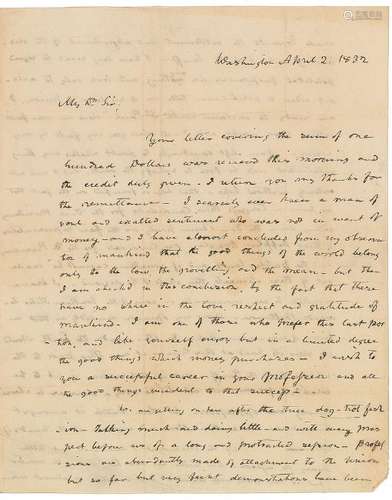 Washington April 2. 1832
My Dr Sir,
Your letter covering the sum of one
hundred Dollars was received this morning and
the credit duly given. I return you my thanks for
the remittance — I scarcely ever knew a man of
soul and exalted sentiment who was not in want of
money — and I have almost concluded from my observa
tion of mankind that the good things of the world belong
only to the low, the grovelling and the mean — but then
I am check'd in this conclusion, by the fact that these
have no share in the love respect and gratitude of
mankind. I am one of those who prefer this last por
tion, and like yourself enjoy but in a limited degree
the good things which money purchases — I wish to
you a successful career in your profession and all
the good things incident to that success —
We are getting on here after the true day fash
ion — talking much and doing little — and with every pros
pect before us of a long and protracted session — Profes
sions are abundantly made of attachment to the Union
but so far but very faint demonstrations have been